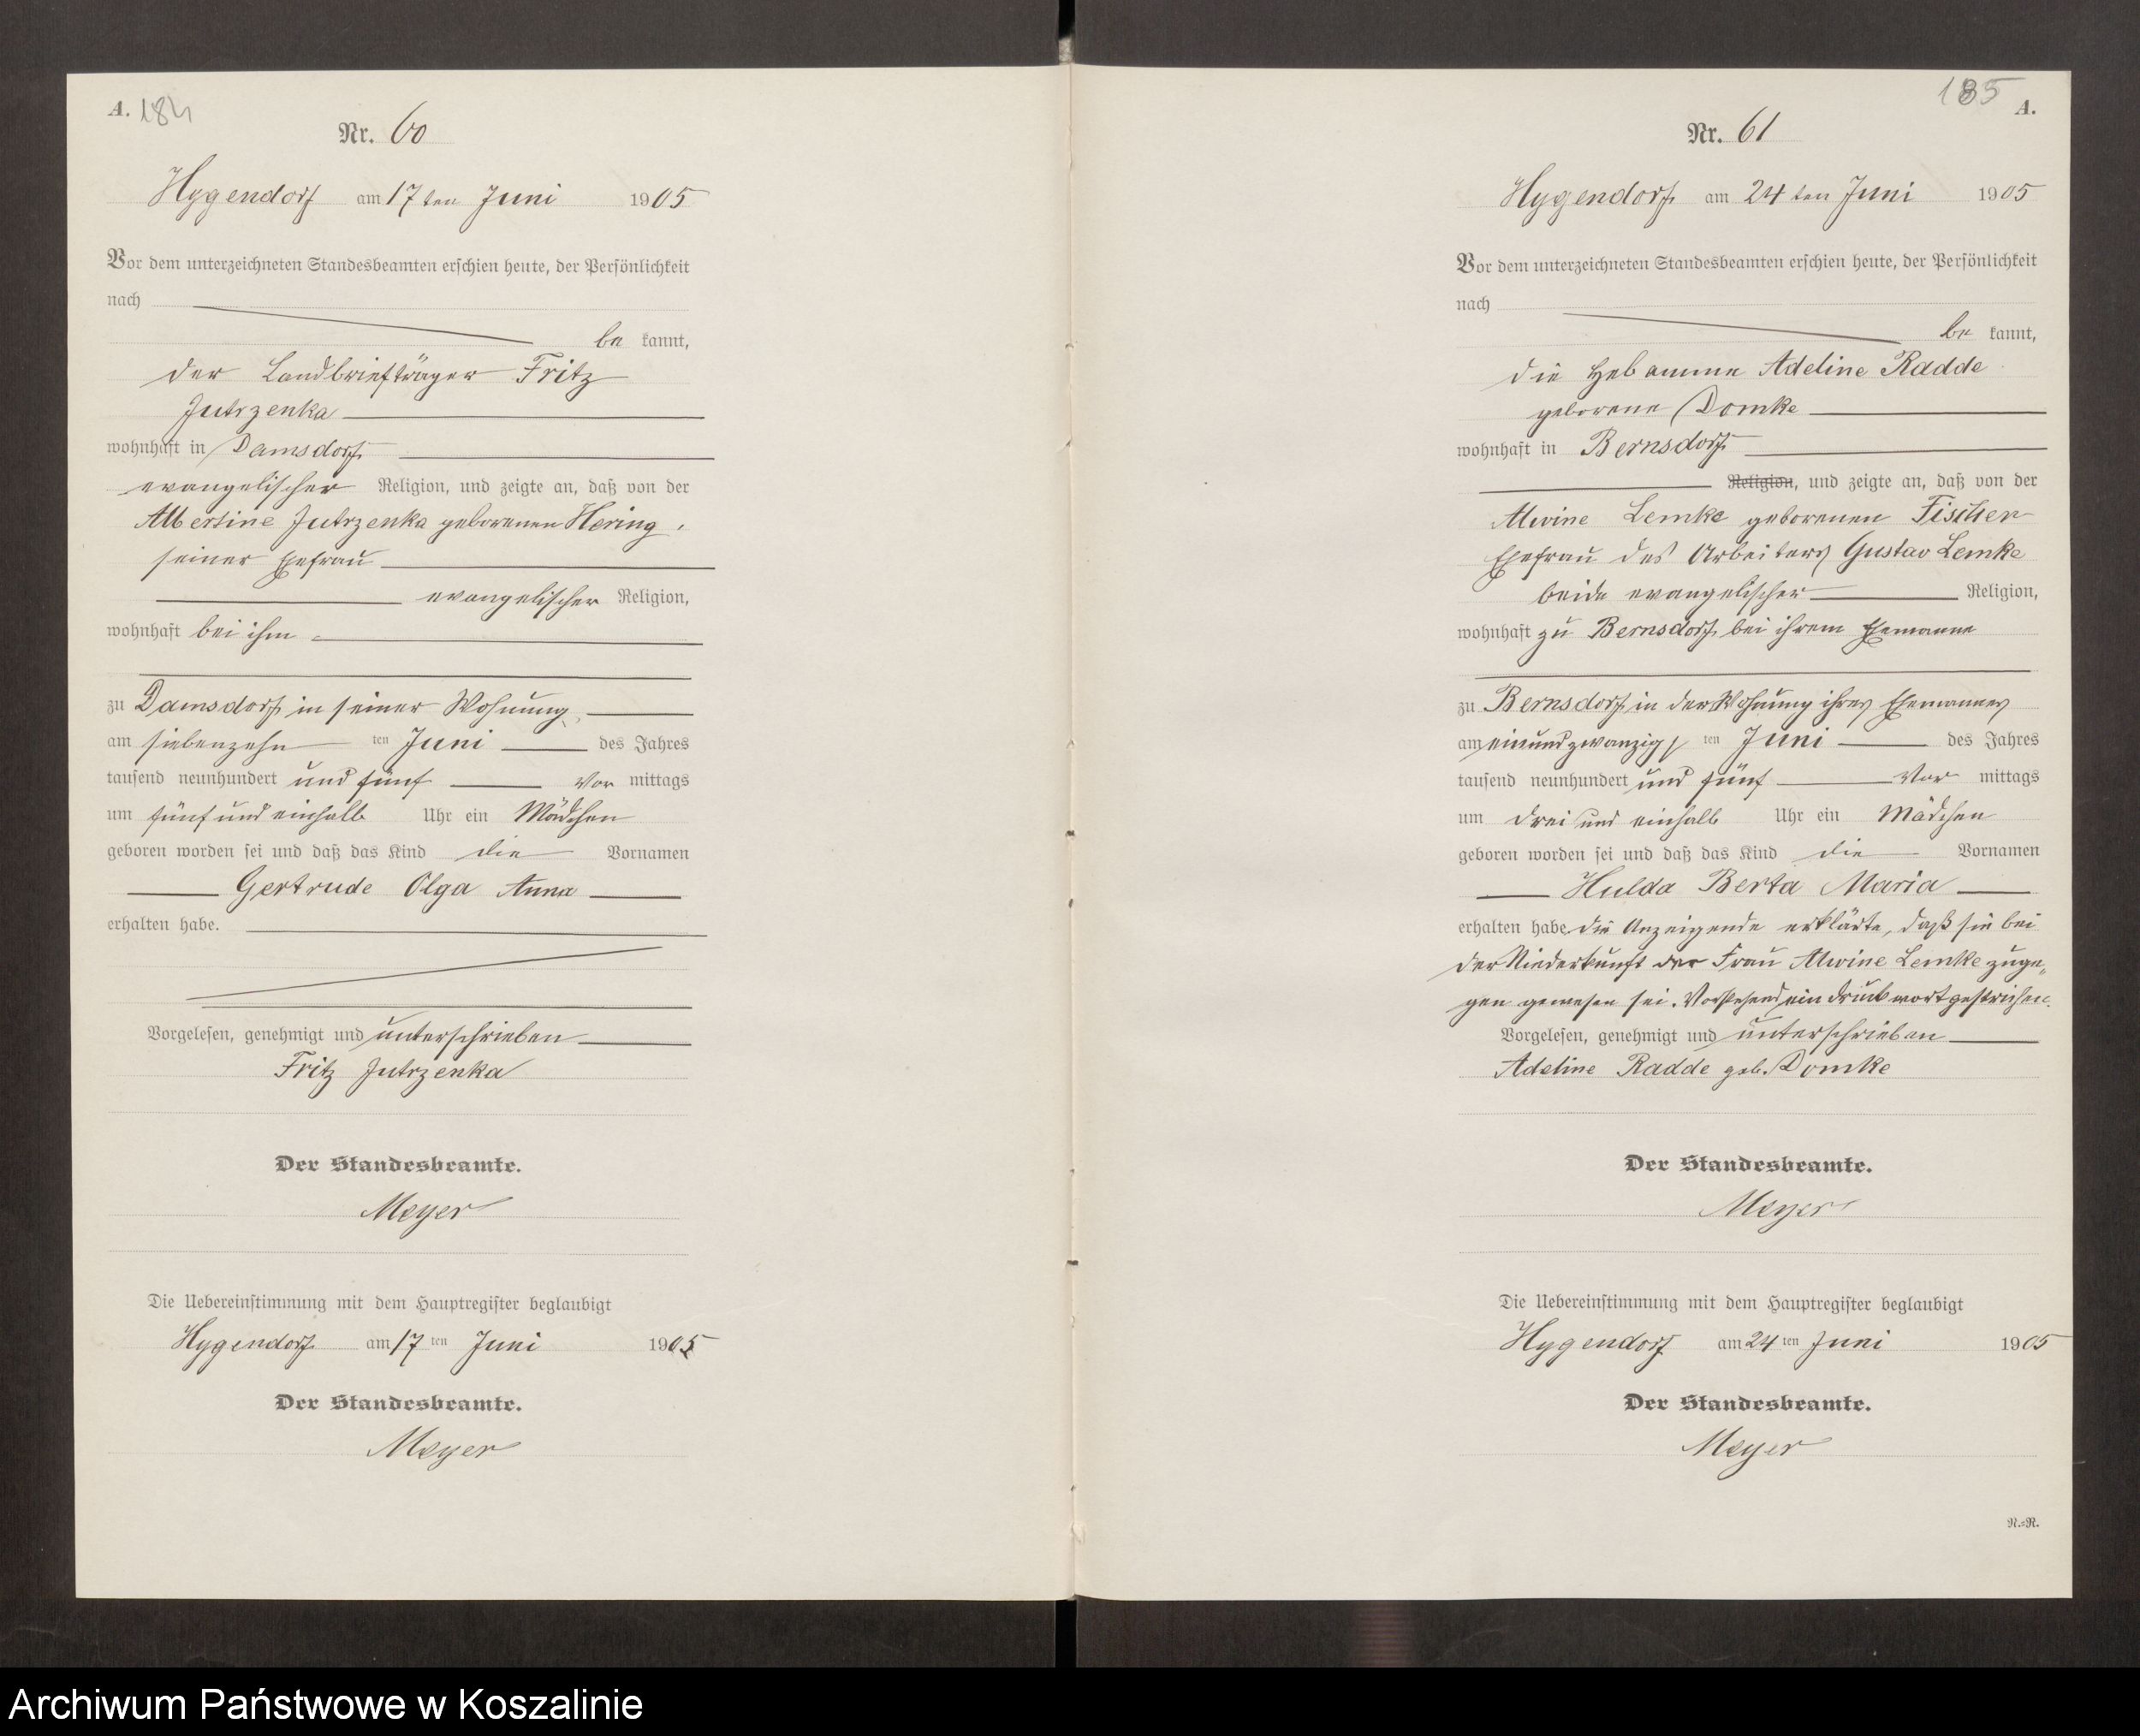 A. 184
Nr. 60
Hygendorf am 17ten Juni 1905
Vor dem unterzeichneten Standesbeamten erschien heute, der Persönlichkeit
nach
be kannt,
der Landbriefträger Fritz
Jutrzenka
wohnhaft in Damsdorf
evangelischer Religion, und zeigte an, daß von der
Albertine Jutrzenka geborenen Hering,
seiner Ehefrau
evangelischer Religion,
wohnhaft bei ihm
zu Damsdorf in seiner Wohnung,
am siebenzehn ten Juni des Jahres
tausend neunhundert und fünf Vor mittags
um fünf und einhalb Uhr ein Mädchen
geboren worden sei und daß das Kind die Vornamen
Gertrude Olga Anna
erhalten habe.
Vorgelesen, genehmigt und unterschrieben
Fritz Jutrzenka
Der Standesbeamte.
Meyer
Die Uebereinstimmung mit dem Hauptregister beglaubigt
Hygendorf am 17 ten Juni 1905
Der Standesbeamte.
Meyer
185 A.
Nr. 61
Hygendorf am 24ten Juni 1905
Vor dem unterzeichneten Standesbeamten erschien heute, der Persönlichkeit
nach
be kannt,
die Hebamme Adeline Radde
geborene Domke
wohnhaft in Bernsdorf
Religion, und zeigte an, daß von der
Alwine Lemke geborenen Fischer
Ehefrau des Arbeiters Gustav Lemke
beide evangelischer Religion,
wohnhaft zu Bernsdorf bei ihrem Ehemanne
zu Bernsdorf in der Wohnung ihres Ehemannes
am einundzwanzigs ten Juni des Jahres
tausend neunhundert und fünf Vor mittags
um drei und einhalb Uhr ein Mädchen
geboren worden sei und daß das Kind die Vornamen
Hulda Berta Maria
erhalten habe. Die Anzeigende erklärte, daß sie bei
der Niederkunft der Frau Alwine Lemke zuge-
gen gewesen sei. Vorstehend ein Druckwort gestrichen.
Vorgelesen, genehmigt und unterschrieben
Adeline Radde geb. Domke
Der Standesbeamte.
Meyer
Die Uebereinstimmung mit dem Hauptregister beglaubigt
Hygendorf am 24 ten Juni 1905
Der Standesbeamte.
Meyer
N.=R.
Archiwum Państwowe w Koszalinie